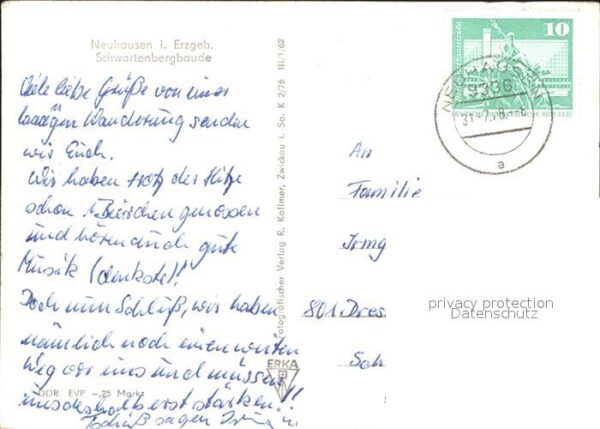 Neuhausen i. Erzgeb.
Schwartenbergbaude
Viele liebe Grüße von einer
Wanderung senden
wir Euch.
Wir haben trotz der Hitze
schon 1 Bierchen genossen
und hören auch gute
Musik (denkste)!
Doch nun Schluß, wir haben
nämlich noch einen weiten
Weg vor uns und müssen
uns deshalb erst stärken!!
Tschüß sagen
DDR EVP —,25 Mark
Fotografischer Verlag R. Kallmer, Zwickau i. Sa. K 2/76 III/1/62
ERKA
10
NEUHAUSEN
9336
a
An
Familie
Irmg
801 Dres
Sch
privacy protection
Datenschutz